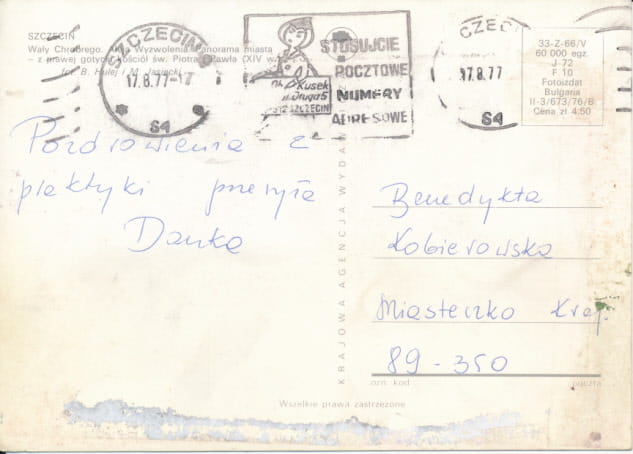 SZCZECIN
Wały Chrobrego. Wyzwolenia. Panorama miasta
– z prawej gotycki kościół św. Piotra i Pawła (XIV w.)
fot. B. Hulej i M. Jasiecki
SZCZECIN
17.8.77-17
S4
Kusek
ul. Długa 5
SZCZECIN
STOSUJCIE
POCZTOWE
NUMERY
ADRESOWE
SZCZECIN
17.8.77
S4
33-Z-66/V
60 000 egz.
J 72
F 10
Fotoizdat
Bulgaria
II-3/673/76/B
Cena zł 4.50
Pozdrowienia z
praktyki przesyła
Danka
KRAJOWA AGENCJA WYDA
Benedykta
Kobierowska
Miasteczko Kraj.
89-350
ozn. kod
poczta
Wszelkie prawa zastrzeżone